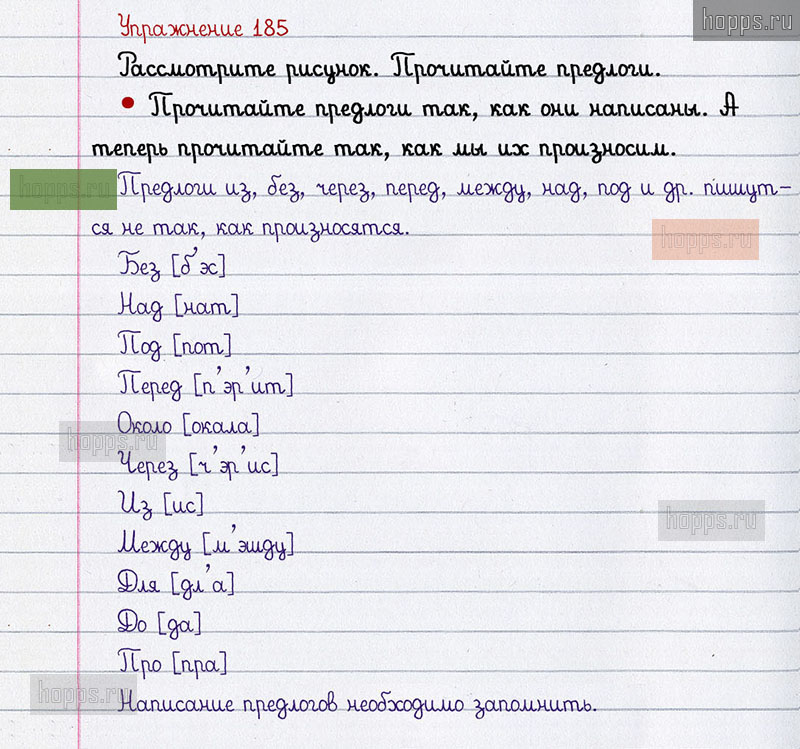 hopps.ru
Упражнение 185
Рассмотрите рисунок. Прочитайте предлоги.
• Прочитайте предлоги так, как они написаны. А
теперь прочитайте так, как мы их произносим.
hopps.ru
Предлоги из, без, через, перед, между, над, под и др. пишут-
ся не так, как произносятся.
hopps.ru
Без [б'эс]
Над [нат]
Под [пот]
Перед [п'эр'ит]
Около [окала]
hopps.ru
Через [ч'эр'ис]
Из [ис]
hopps.ru
Между [м'эшду]
Для [дл'а]
До [да]
Про [пра]
hopps.ru
Написание предлогов необходимо запомнить.